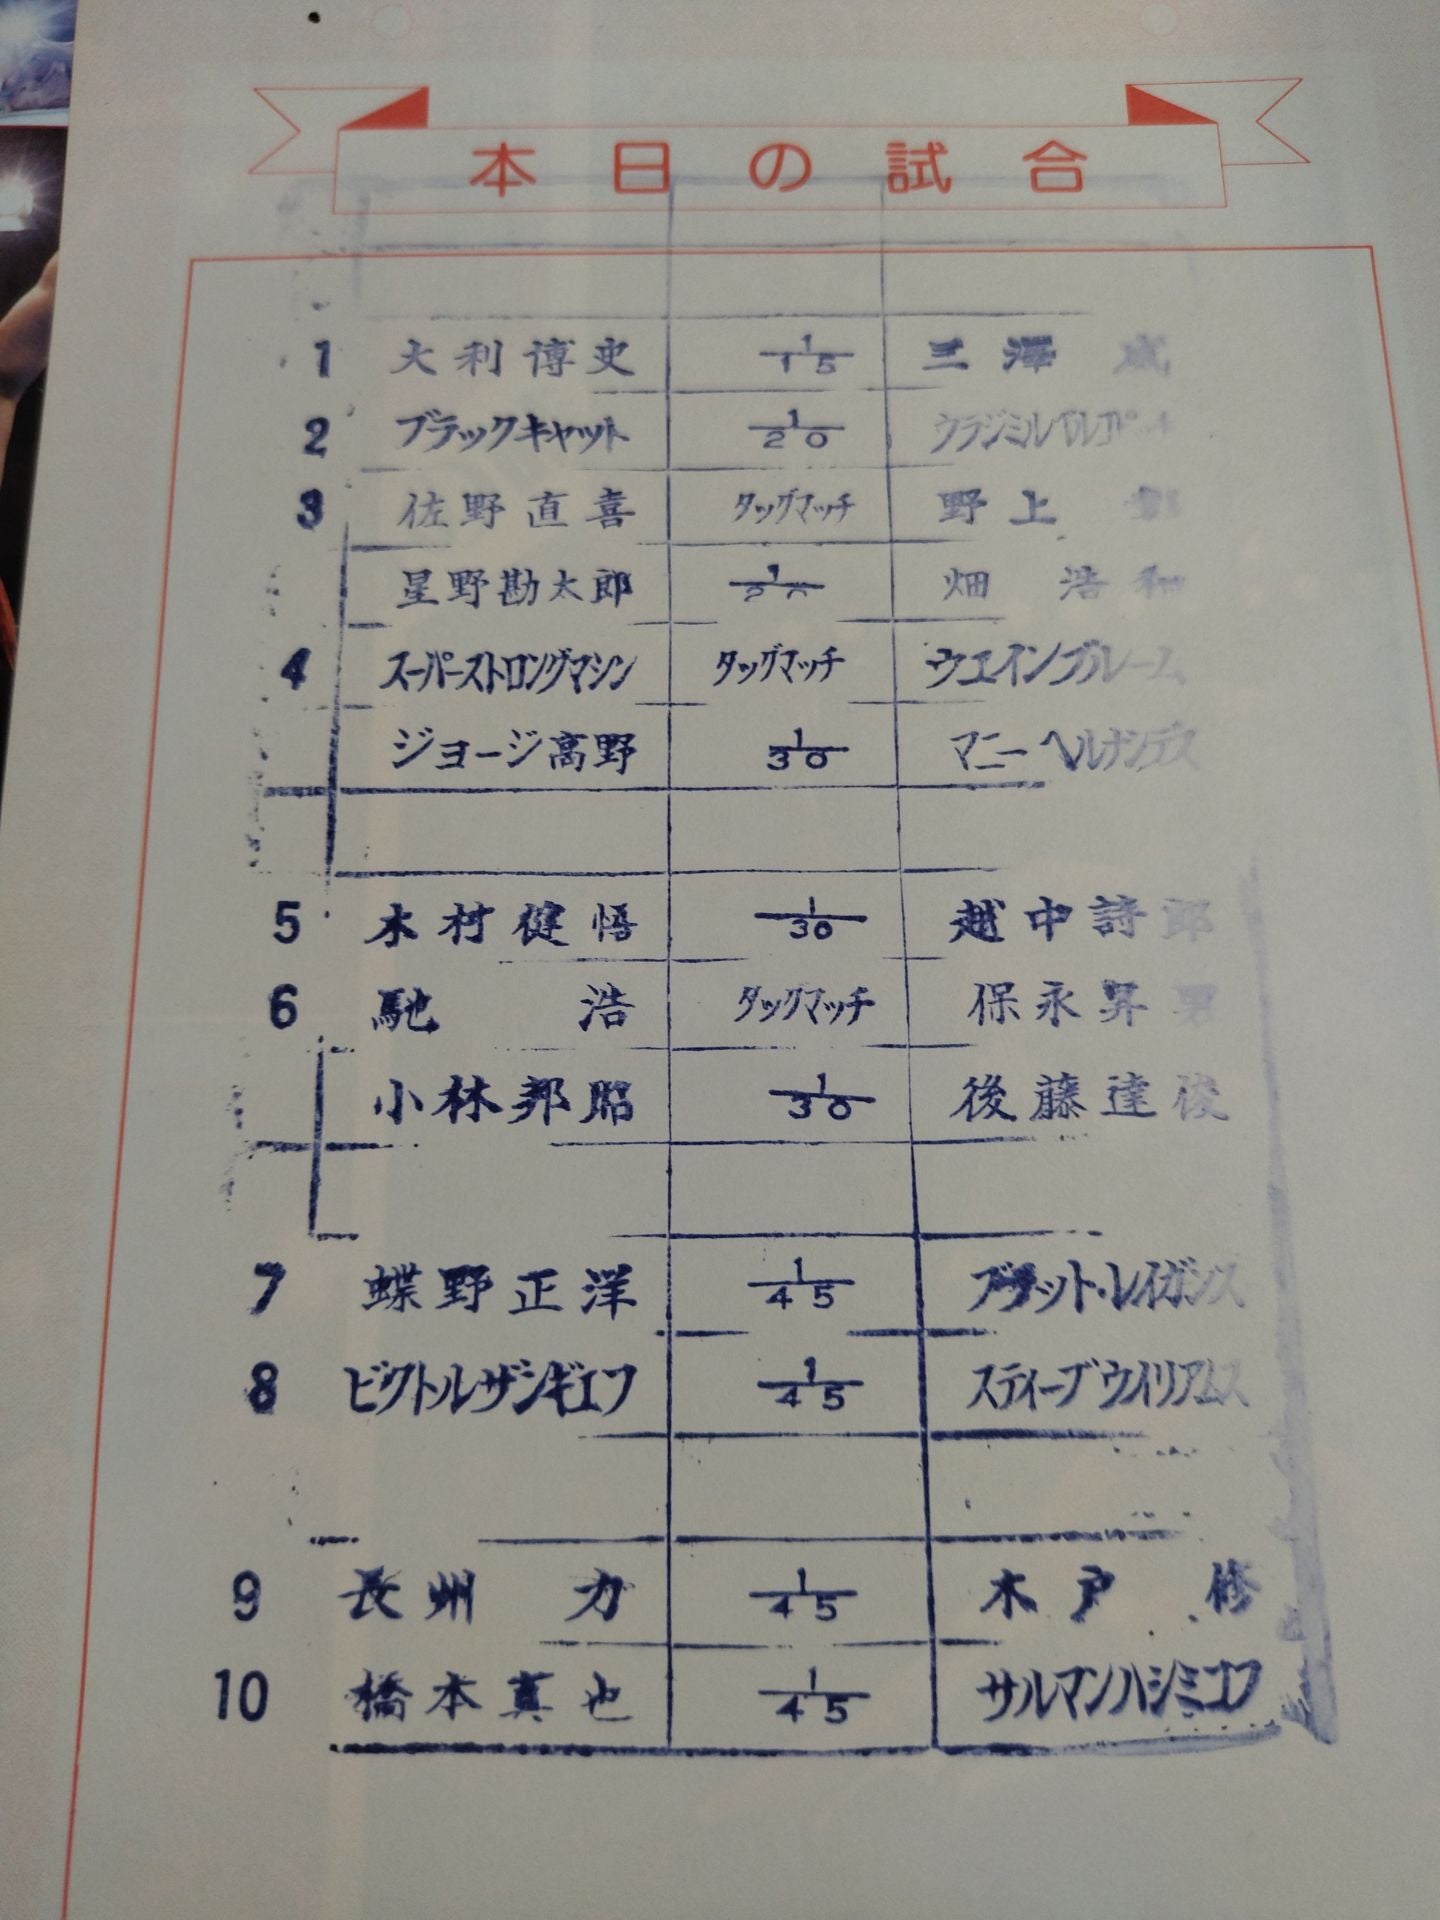 本日の試合
1 大利博史 1/15 三澤 威
2 ブラックキャット 1/20 ウラジミル
3 佐野直喜 タッグマッチ 野上
星野勘太郎 1/20 畑 浩和
4 スーパーストロングマシン タッグマッチ ウエインブルーム
ジョージ高野 1/30 マニーヘルナンデス
5 木村健悟 1/30 越中詩郎
6 馳 浩 タッグマッチ 保永昇男
小林邦昭 1/30 後藤達俊
7 蝶野正洋 1/45 ブラット・レイガンス
8 ビクトルザンギエフ 1/45 スティーブウイリアムス
9 長州 力 1/45 木戸 修
10 橋本真也 1/45 サルマンハシミコフ